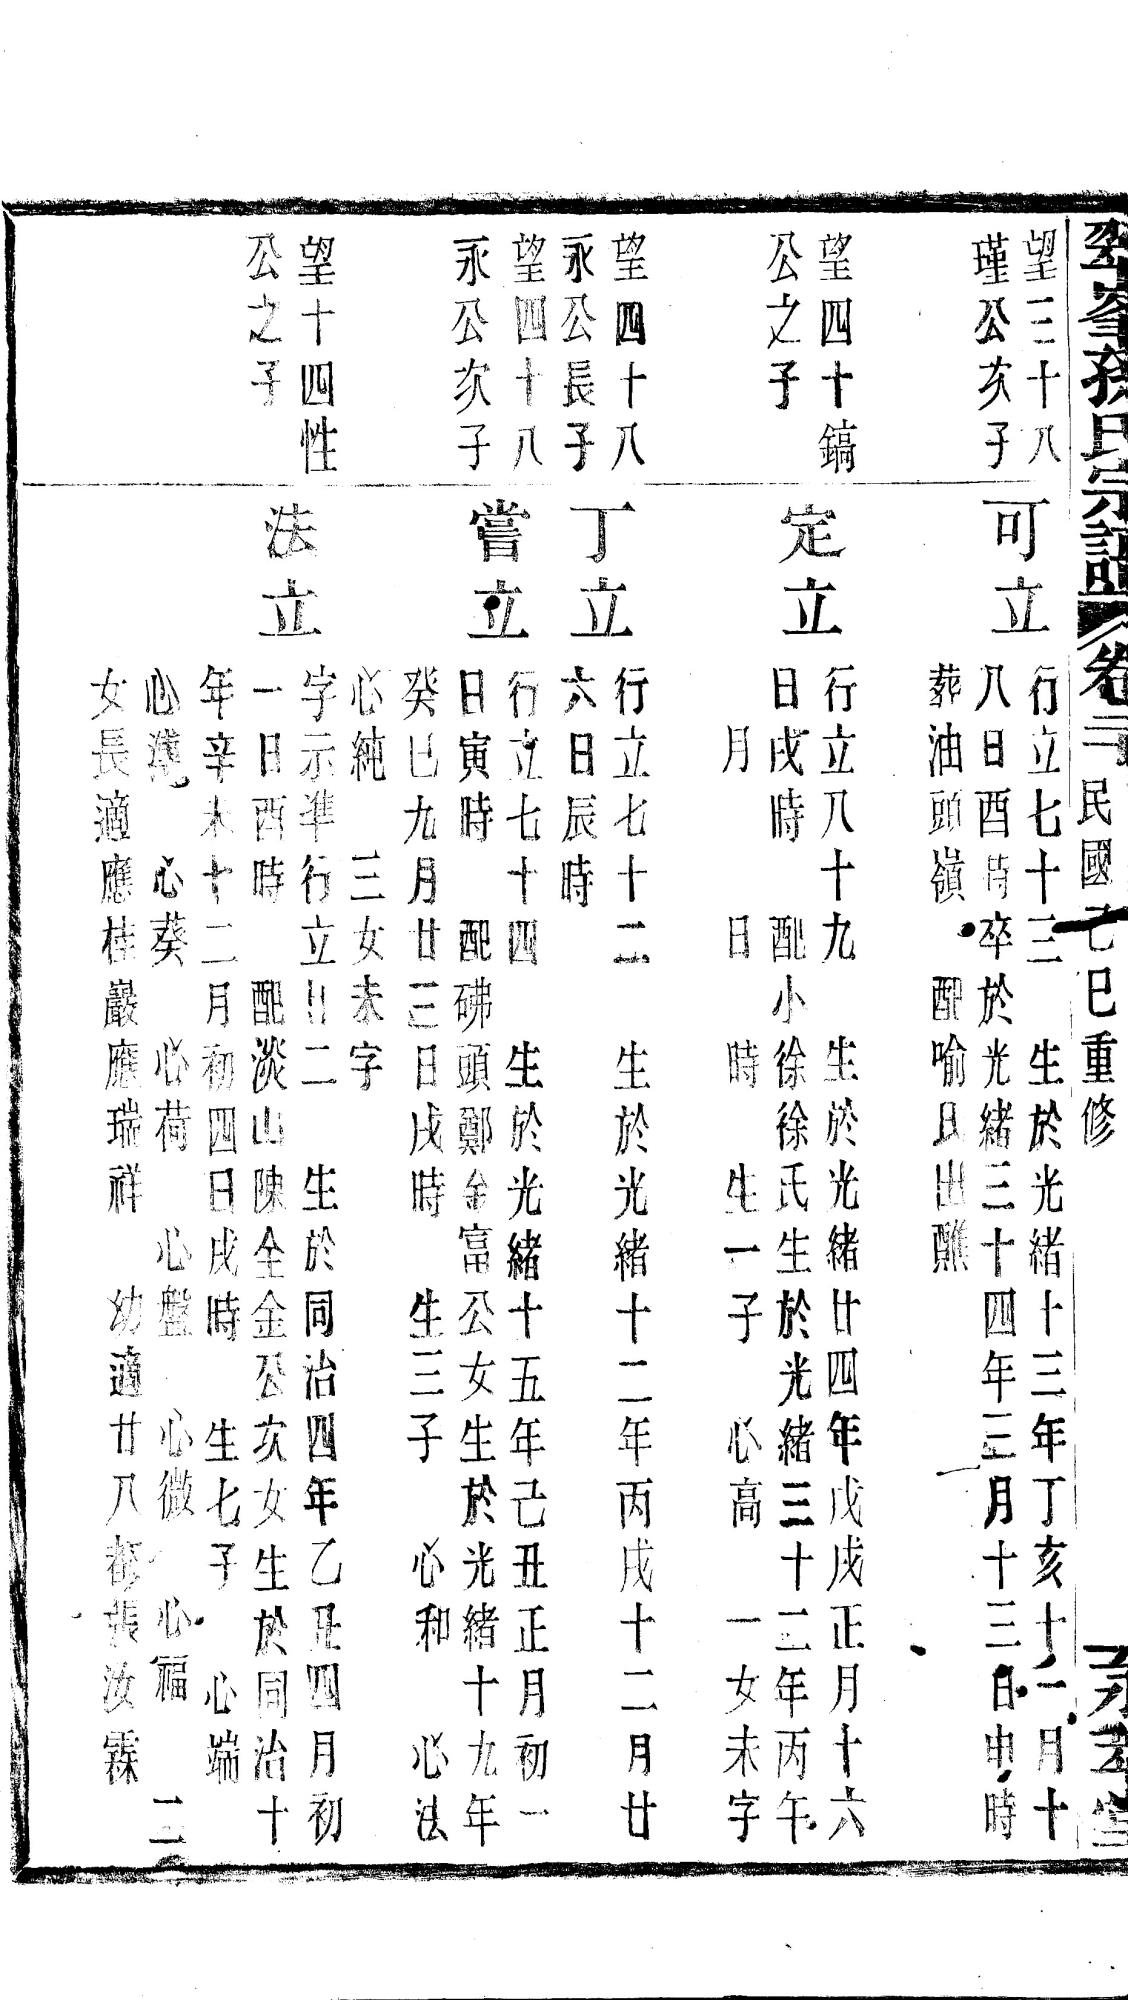 峯孫氏宗譜 卷二 民國己巳重修
望三十八
瑾公次子
可立
行立七十三 生於光緒十三年丁亥十一月十
八日酉時卒於光緒三十四年三月十三日申時
葬油頭嶺 配喻氏出醮
望四十鎬
公之子
定立
行立八十九 生於光緒廿四年戊戌正月十六
日戌時 配小徐徐氏生於光緒三十二年丙午
月 日 時 生一子 心高 一女未字
望四十八
永公長子
丁立
行立七十二 生於光緒十二年丙戌十二月廿
六日辰時
望四十八
永公次子
嘗立
行立七十四 生於光緒十五年己丑正月初一
日寅時 配硑頭鄭金富公女生於光緒十九年
癸巳九月廿三日戌時 生三子 心和 心法
心純 三女未字
望十四性
公之子
法立
字示準行立廿二 生於同治四年乙丑四月初
一日酉時 配淡山陳全金公次女生於同治十
年辛未十二月初四日戌時 生七子 心端
心漢 心葵 心荷 心盤 心微 心福 二
女長適應桂巖應瑞祥 幼適廿八都張汝霖